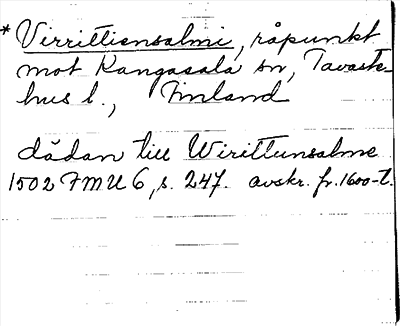 * Virrittiensalmi, råpunkt
mot Kangasala sn, Tavaste-
hus l., Finland
dädan till Wirittunsalme
1502 FMU 6, s. 247. avskr. fr. 1600-t.